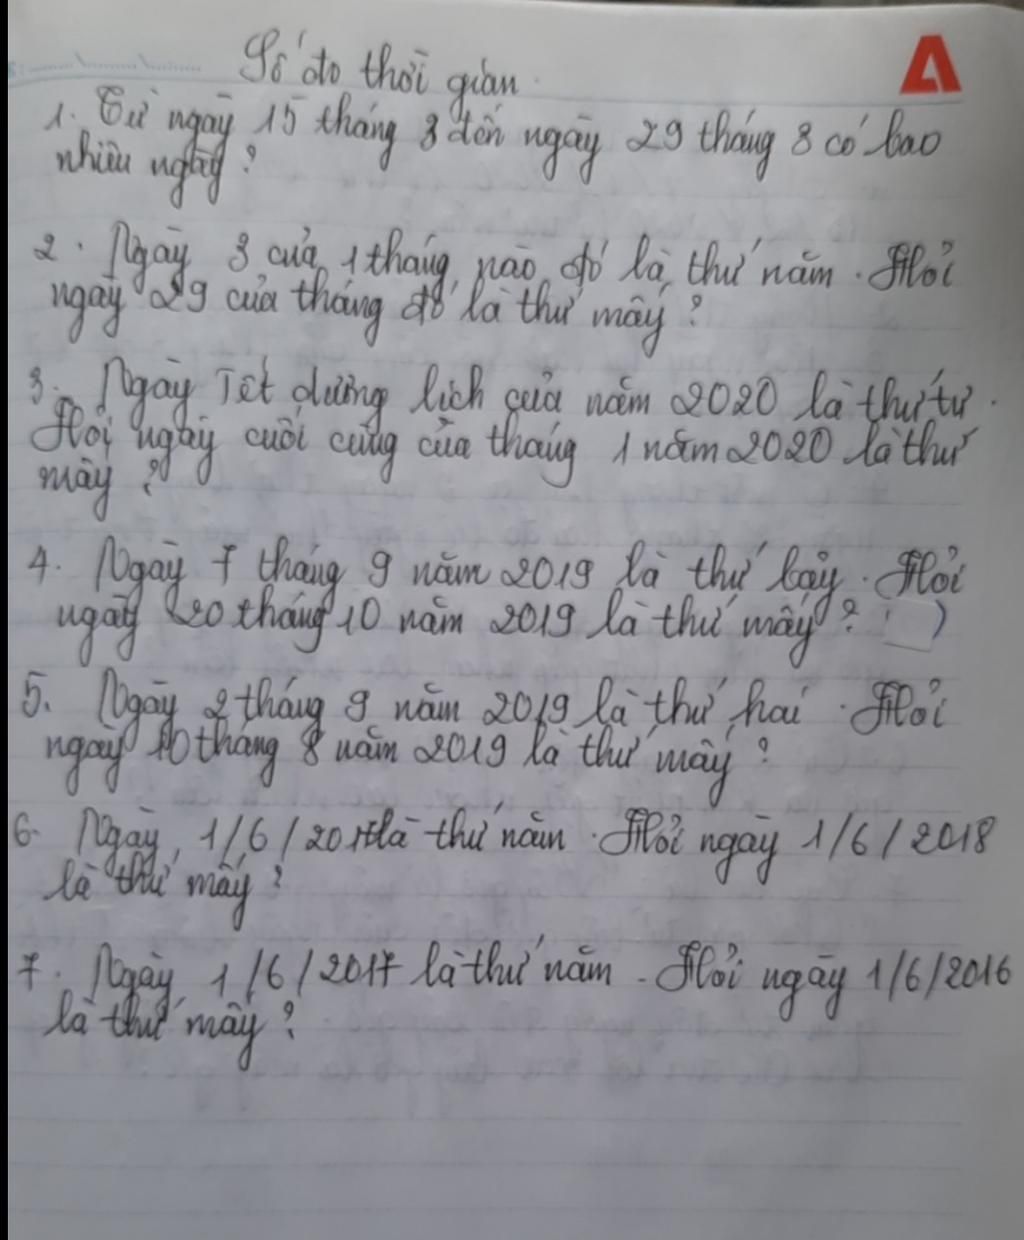 Số đo thời gian.
1. Từ ngày 15 tháng 3 đến ngày 29 tháng 8 có bao
nhiêu ngày?
2. Ngày 3 của 1 tháng nào đó là thứ năm. Hỏi
ngày 29 của tháng đó là thứ mấy?
3. Ngày Tết dương lịch của năm 2020 là thứ tư.
Hỏi ngày cuối cùng của tháng 1 năm 2020 là thứ
mấy?
4. Ngày 7 tháng 9 năm 2019 là thứ bảy. Hỏi
ngày 20 tháng 10 năm 2019 là thứ mấy?
5. Ngày 2 tháng 9 năm 2019 là thứ hai. Hỏi
ngày 10 tháng 8 năm 2019 là thứ mấy?
6. Ngày 1/6/2017 là thứ năm. Hỏi ngày 1/6/2018
là thứ mấy?
7. Ngày 1/6/2017 là thứ năm. Hỏi ngày 1/6/2016
là thứ mấy?